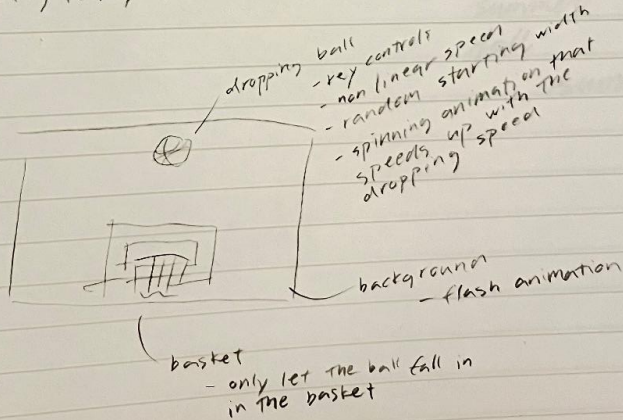 dropping ball
- key controls
- non linear speed
- random starting width
- spinning animation that
speeds up with the
dropping speed
background
- flash animation
basket
- only let the ball fall in
in the basket